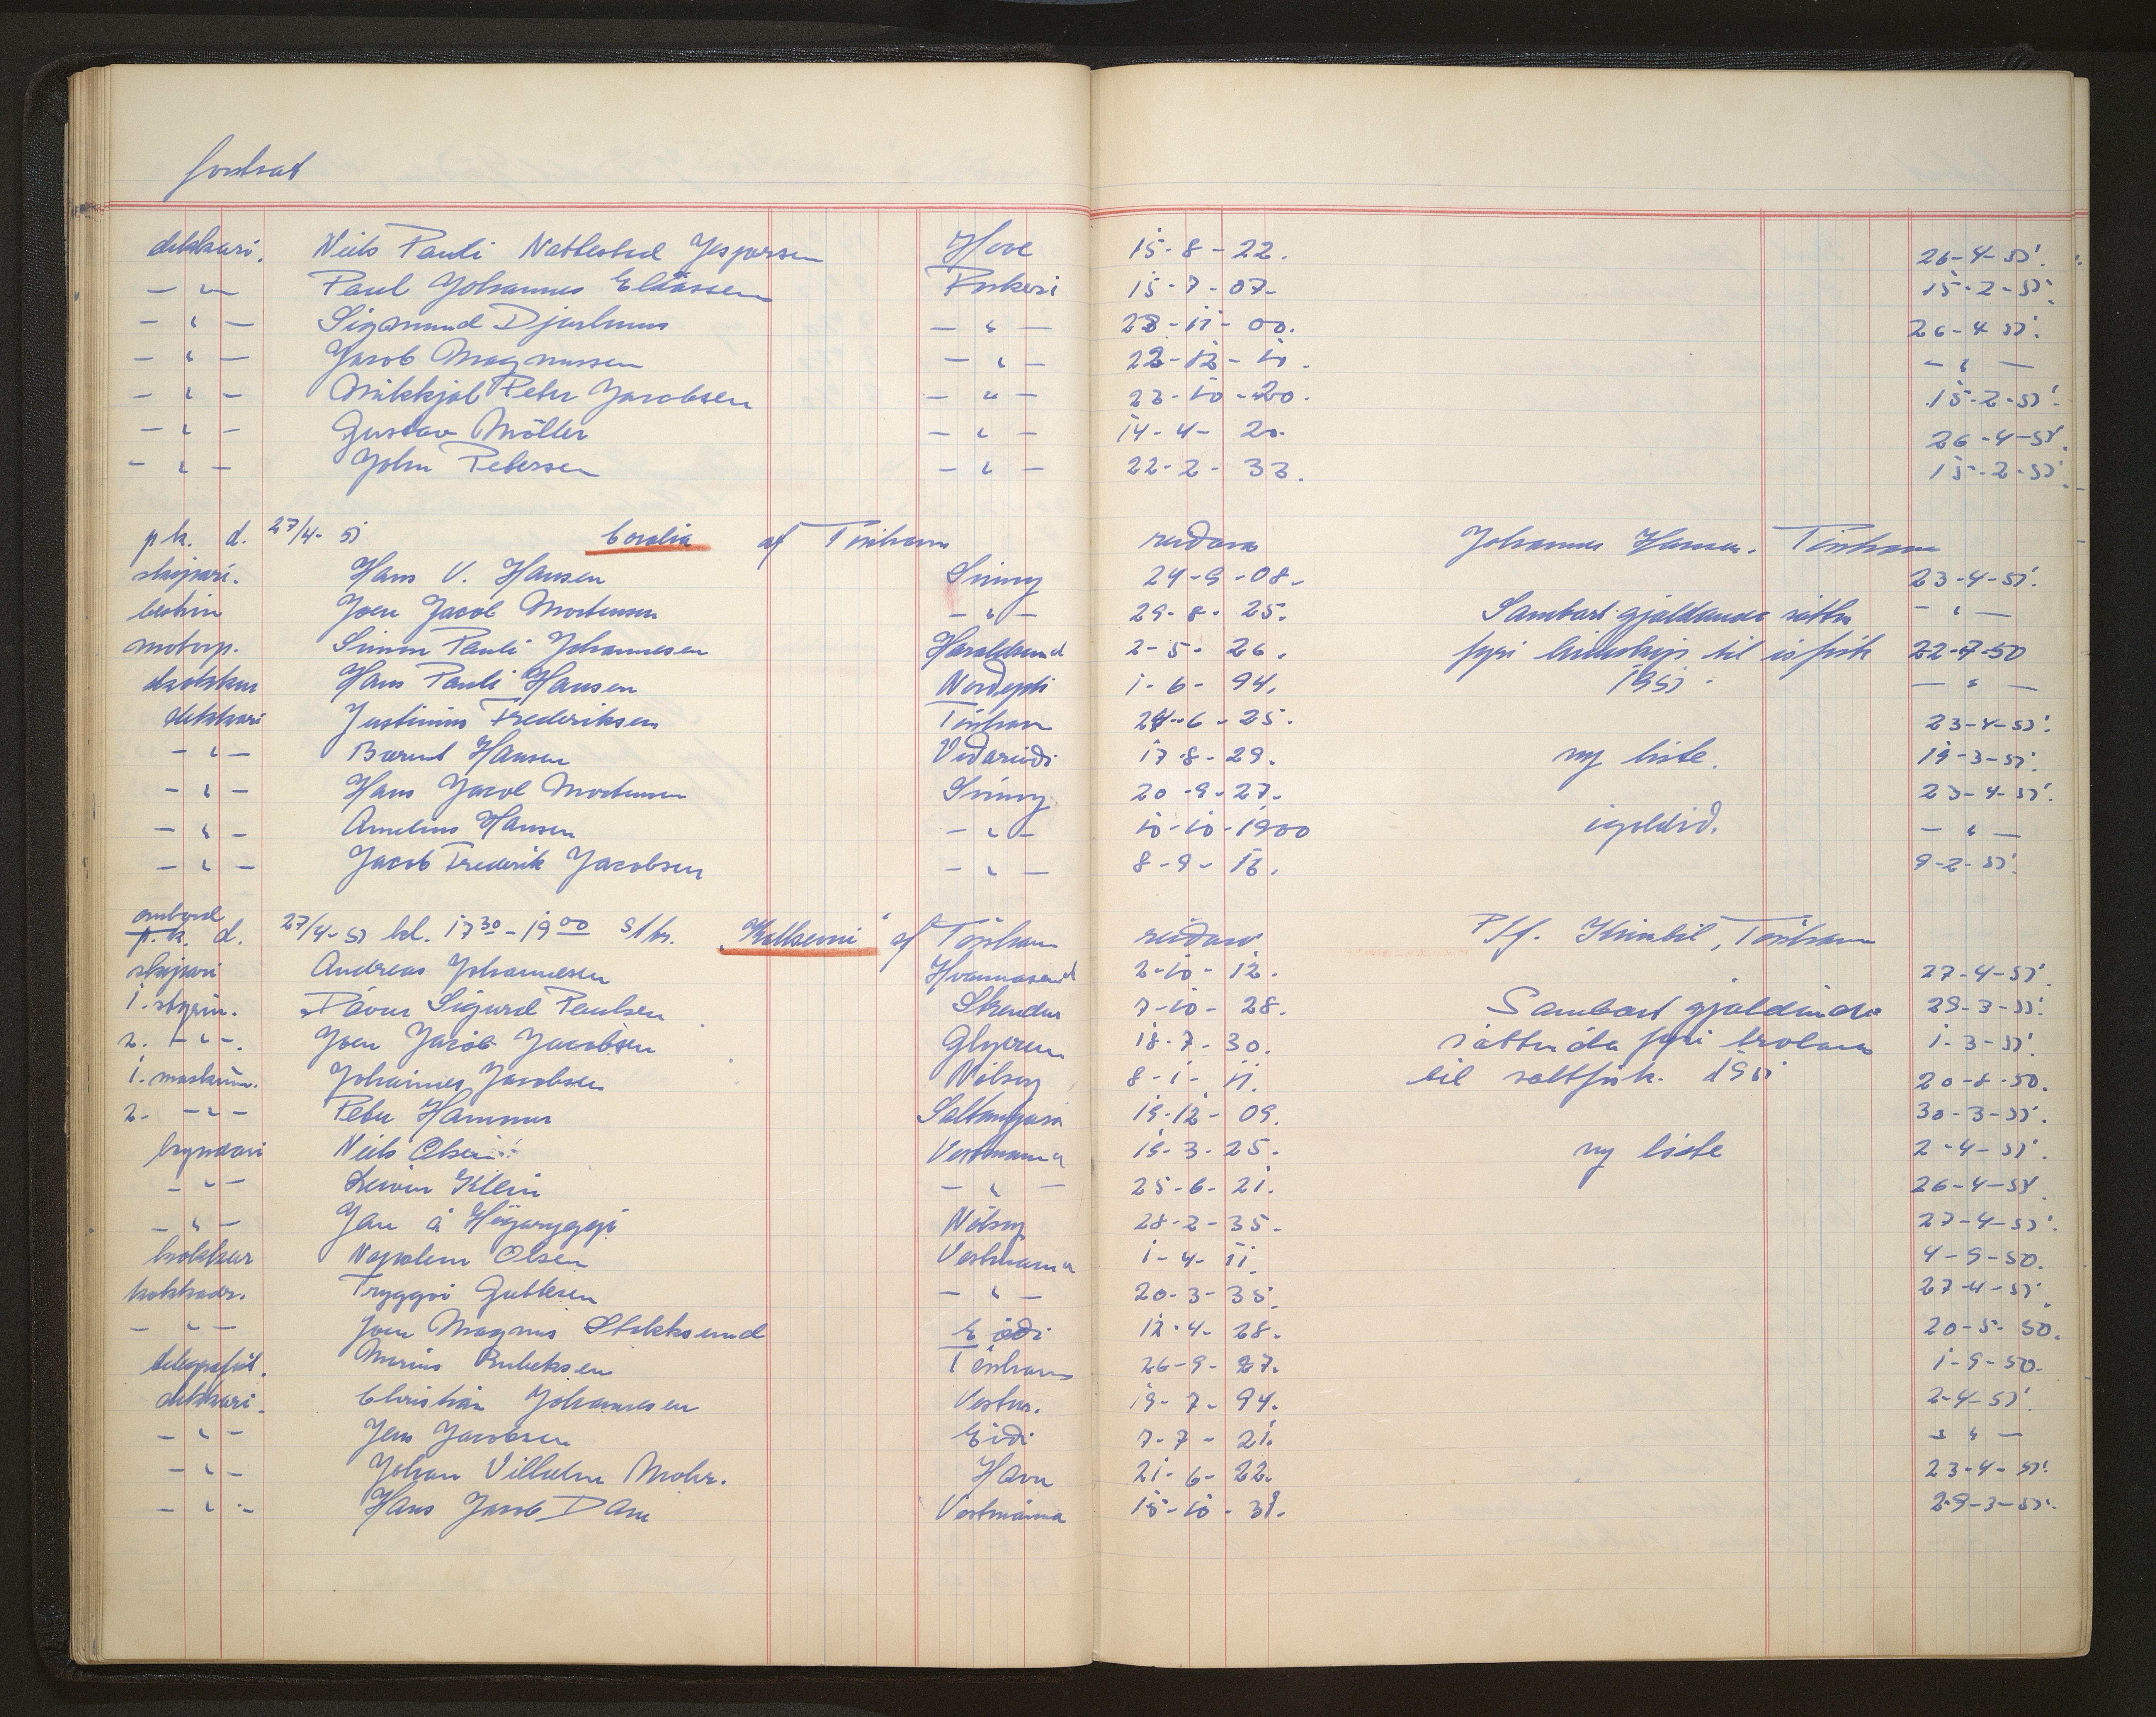 forsat
dekkari. Niels Pauli Nattestad Jespersen Hove 15-8-22. 26-4-51.
— " — Paul Johannes Eliassen Porkeri 15-7-07- 15-2-51.
— " — Sigmund Djurhuus — " — 23-11-00. 26-4-51.
— " — Jacob Magnussen — " — 22-12-10. — " —
— " — Mikkjal Peter Jacobsen — " — 23-10-20. 15-2-51.
— " — Gustav Möller — " — 14-4-20. 26-4-51.
— " — John Petersen — " — 22-2-33. 15-2-51.
p k. d. 27/4-51 Coralia af Tórshavn reiðara Johannes Hansen. Tórshavn
skipari. Hans V. Hansen Svinoy 24-9-08. 23-4-51.
bestm Joen Jacob Mortensen — " — 29-8-25. Sambart gjaldandi sáttm — " —
motorp. Simon Pauli Johannesen Haraldssund 2-5-26. fyri línuskip til ísfisk 22-7-50
kokkur Hans Pauli Hansen Norðepli 1-6-94. 1951. — " —
dekkari Justinus Frederiksen Tórshavn 24-6-25. 23-4-51.
— " — Barent Hansen Viðareiði 17-8-29. ny liste. 19-3-51.
— " — Hans Jacob Mortensen Svinoy 20-9-27. 23-4-51.
— " — Amelius Hansen — " — 10-10-1900 igoldið. — " —
— " — Jacob Frederik Jacobsen — " — 8-9-13. 9-2-51.
ombord
p. k. d. 27/4-51 kl. 17 30 - 19 00 S/tr. "Kallsevni" af Tórshavn reiðari P/f. Kinbil, Tórshavn
skipari Andreas Johannesen Hvannasund 2-10-12. 27-4-51.
1. stýrim. Dávur Sigurd Poulsen Strendur 7-10-28. Sambart gjaldandi 29-3-51.
2. — " —. Joen Jacob Jacobsen Glyvrum 18-7-30. sáttmála fyri trolara 1-3-51.
1. maskinm. Johannes Jacobsen Nólsoy 8-1-11. til saltfisk. 1951 20-8-50.
2. — " — Peter Hammer Saltangará 19-12-09. 30-3-51.
kyndari Niels Olsen Vestmanna 19-3-25. ny liste 2-4-51.
— " — Leivur Klein — " — 25-6-21. 26-4-51.
— " — Jan á Høgaryggi Nólsoy 28-2-35. 27-4-51.
kokkur Napoleon Olsen Vestmanna 1-4-11. 4-9-50.
kokkadr. Tryggvi Guttesen — " — 20-3-35. 27-4-51.
— " — Joen Magnus Stokksund Eiði 12-4-28. 20-5-50.
telegrafist. Marius Rubeksen Tórshavn 26-9-27. 1-9-50.
dekkari. Christian Johannesen Vestm. 19-7-94. 2-4-51.
— " — Jens Jacobsen Eiði 7-7-21. — " —
— " — Johan Vilhelm Mohr. Havn 21-6-22. 23-4-51.
— " — Hans Jacob Dam Vestmanna 15-10-31. 29-3-51.